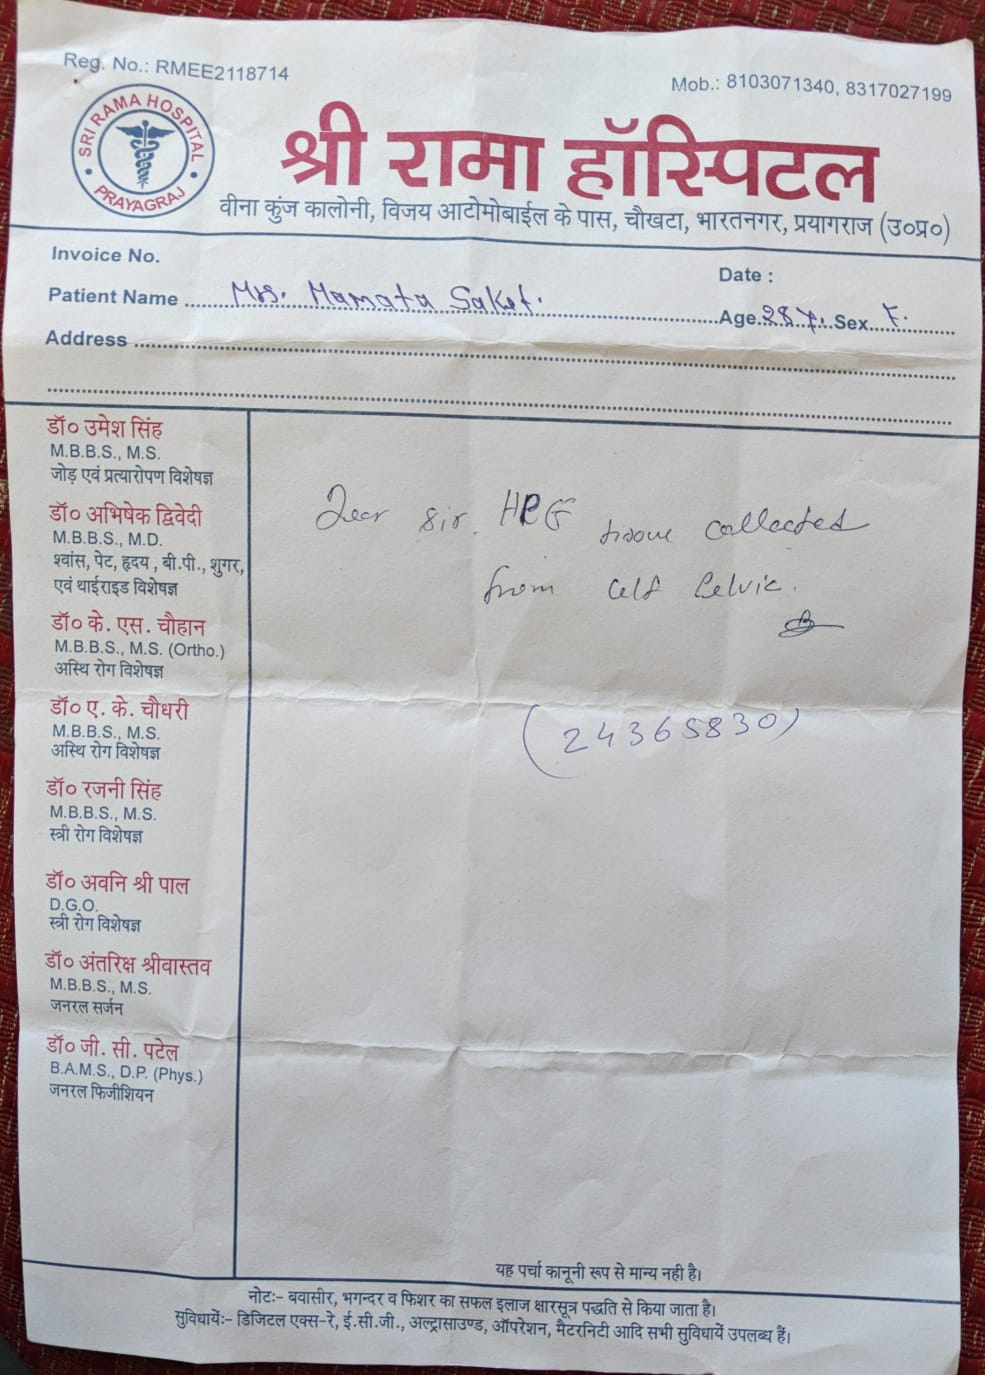 Reg. No.: RMEE2118714
Mob.: 8103071340, 8317027199
SRI RAMA HOSPITAL
PRAYAGRAJ
श्री रामा हॉस्पिटल
वीना कुंज कालोनी, विजय आटोमोबाईल के पास, चौखटा, भारतनगर, प्रयागराज (उ०प्र०)
Invoice No.
Date :
Patient Name Mrs. Mamata Saket. Age 28 y. Sex F.
Address
डॉ० उमेश सिंह
M.B.B.S., M.S.
जोड़ एवं प्रत्यारोपण विशेषज्ञ
डॉ० अभिषेक द्विवेदी
M.B.B.S., M.D.
श्वांस, पेट, हृदय , बी.पी., शुगर,
एवं थाईराइड विशेषज्ञ
डॉ० के. एस. चौहान
M.B.B.S., M.S. (Ortho.)
अस्थि रोग विशेषज्ञ
डॉ० ए. के. चौधरी
M.B.B.S., M.S.
अस्थि रोग विशेषज्ञ
डॉ० रजनी सिंह
M.B.B.S., M.S.
स्त्री रोग विशेषज्ञ
डॉ० अवनि श्री पाल
D.G.O.
स्त्री रोग विशेषज्ञ
डॉ० अंतरिक्ष श्रीवास्तव
M.B.B.S., M.S.
जनरल सर्जन
डॉ० जी. सी. पटेल
B.A.M.S., D.P. (Phys.)
जनरल फिजीशियन
Dear Sir. tissue collected
from Pelvic.
(24365830)
यह पर्चा कानूनी रूप से मान्य नही है।
नोटः– बवासीर, भगन्दर व फिशर का सफल इलाज क्षारसूत्र पद्धति से किया जाता है।
सुविधायेंः– डिजिटल एक्स–रे, ई.सी.जी., अल्ट्रासाउण्ड, ऑपरेशन, मैटरनिटी आदि सभी सुविधायें उपलब्ध हैं।